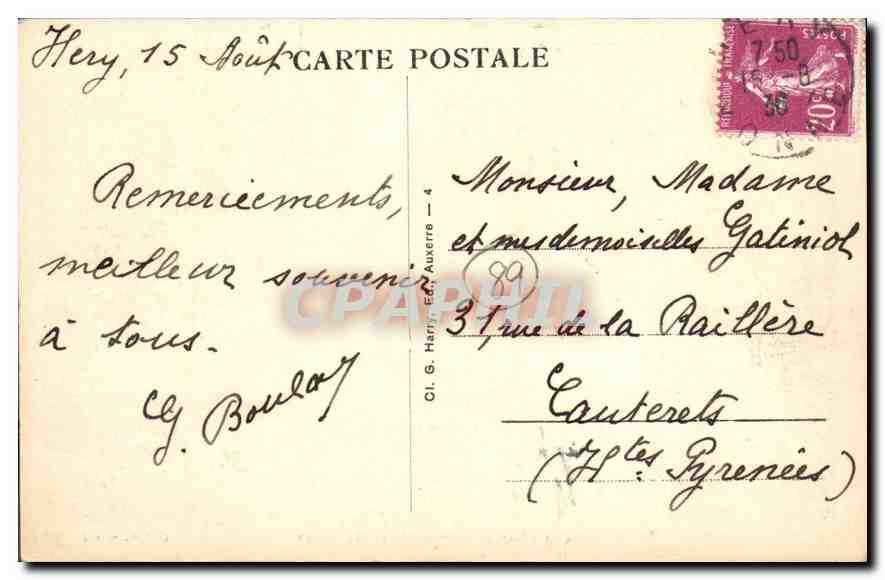 Héry, 15 Août
CARTE POSTALE
Remerciements,
meilleur souvenir
à tous.
G. Boulay
Cl. G. Harry, Ed., Auxerre — 4
REPUBLIQUE FRANÇAISE
POSTES
20c
7 50
-8
36
Monsieur, Madame
et mesdemoiselles Gatiniol
89
31, rue de la Raillère
Cauterets
(Htes Pyrenées)
CPAPHIL